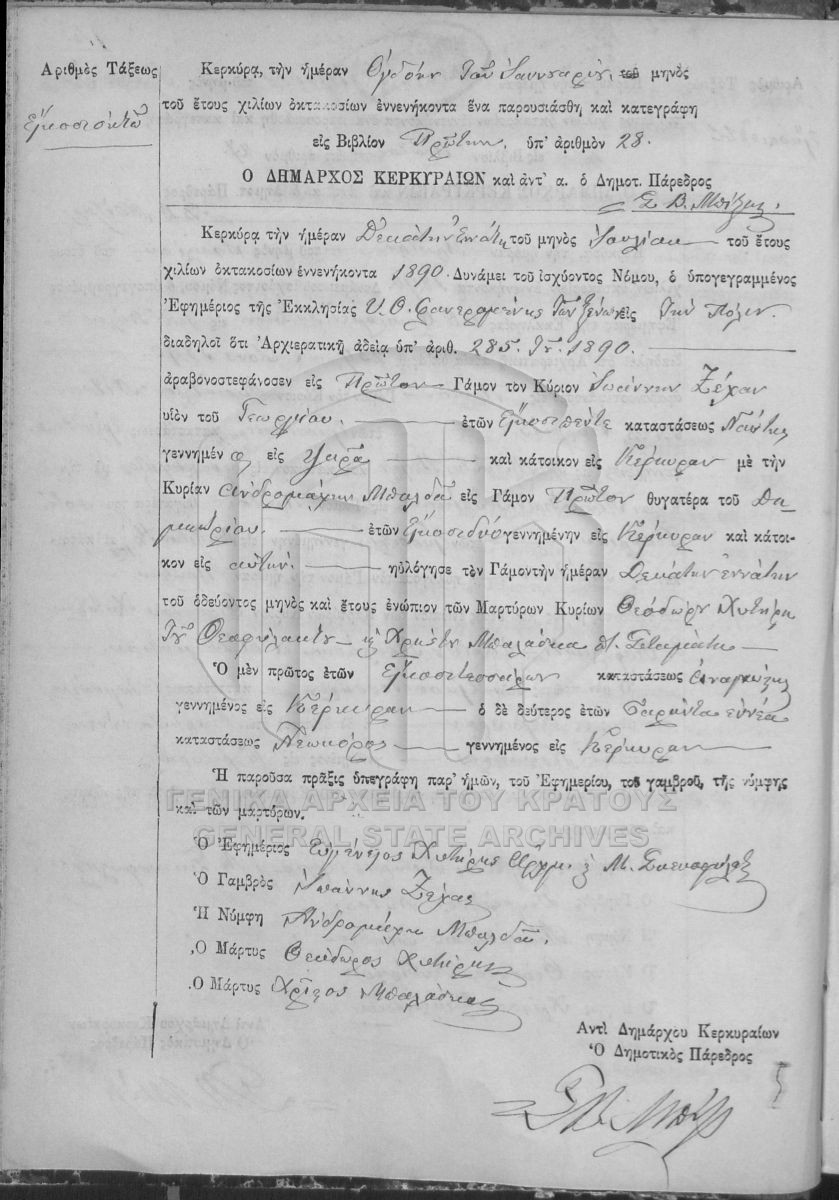 Ἀριθμὸς Τάξεως
Εἰκοσιοκτὼ
Κερκύρᾳ, τὴν ἡμέραν Ὀγδόην τοῦ Ἰαννουαρίου τοῦ μηνὸς
τοῦ ἔτους χιλίων ὀκτακοσίων ἐννενήκοντα ἕνα παρουσιάσθη καὶ κατεγράφη
εἰς Βιβλίον Πρῶτον ὑπ' ἀριθμὸν 28.
Ο ΔΗΜΑΡΧΟΣ ΚΕΡΚΥΡΑΙΩΝ καὶ ἀντ' α. ὁ Δημοτ. Πάρεδρος
Σ Β.
Κερκύρᾳ τὴν ἡμέραν Δεκάτην Ἐννάτη τοῦ μηνὸς Ἰουλίου τοῦ ἔτους
χιλίων ὀκτακοσίων ἐννενήκοντα 1890. Δυνάμει τοῦ ἰσχύοντος Νόμου, ὁ ὑπογεγραμμένος
Ἐφημέριος τῆς Ἐκκλησίας Υ. Θ. Φανερωμένης τῶν Ξένων εἰς τὴν Πόλιν
διαδηλοῖ ὅτι Ἀρχιερατικῇ ἀδείᾳ ὑπ' ἀριθ. 285. 1890.
ἀραβονοστεφάνοσεν εἰς Πρῶτον Γάμον τον Κύριον Ἰωάννην Ζέχαν
υἱὸν τοῦ Γεωργίου. ἐτῶν Εἰκοσιπέντε καταστάσεως Ναύτης
γεννημένο εἰς καὶ κάτοικον εἰς Κέρκυραν μὲ τὴν
Κυρίαν Ἀνδρομάχην Μπαλδᾶ εἰς Γάμον Πρῶτον θυγατέρα τοῦ Δη-
μητρίου. ἐτῶν Εἰκοσιδύο γεννημένην εἰς Κέρκυραν καὶ κάτοι-
κον εἰς αὐτήν. ηὐλόγησε τὸν Γάμον τὴν ἡμέραν Δεκάτην ἐννάτην
τοῦ ὁδεύοντος μηνὸς καὶ ἔτους ἐνώπιον τῶν Μαρτύρων Κυρίων Θεόδωρον Χυτήρη
τοῦ Θεοφυλάκτου κ Χρήστου Μπαλάσκα Σταμάτη
Ὁ μὲν πρῶτος ἐτῶν Εἰκοσιτεσσάρων καταστάσεως
γεννημένος εἰς Κέρκυραν ὁ δὲ δεύτερος ἐτῶν Σαράντα ἐννέα
καταστάσεως Νεωκόρος γεννημένος εἰς Κέρκυραν
Ἡ παροῦσα πρᾶξις ὑπεγράφη παρ' ἡμῶν, τοῦ Ἐφημερίου, τοῦ γαμβροῦ, τῆς νύμφης
καὶ τῶν μαρτύρων.
ΓΕΝΙΚΑ ΑΡΧΕΙΑ ΤΟΥ ΚΡΑΤΟΥΣ
GENERAL STATE ARCHIVES
Ὁ Ἐφημέριος Εὐγένιος Χυτήρης
Ὁ Γαμβρὸς Ἰωάννης Ζέχας
Ἡ Νύμφη Ἀνδρομάχη Μπαλδᾶ.
Ὁ Μάρτυς Θεόδωρος Χυτήρης
Ὁ Μάρτυς Χρῆστος Μπαλάσκας
Ἀντὶ Δημάρχου Κερκυραίων
Ὁ Δημοτικὸς Πάρεδρος